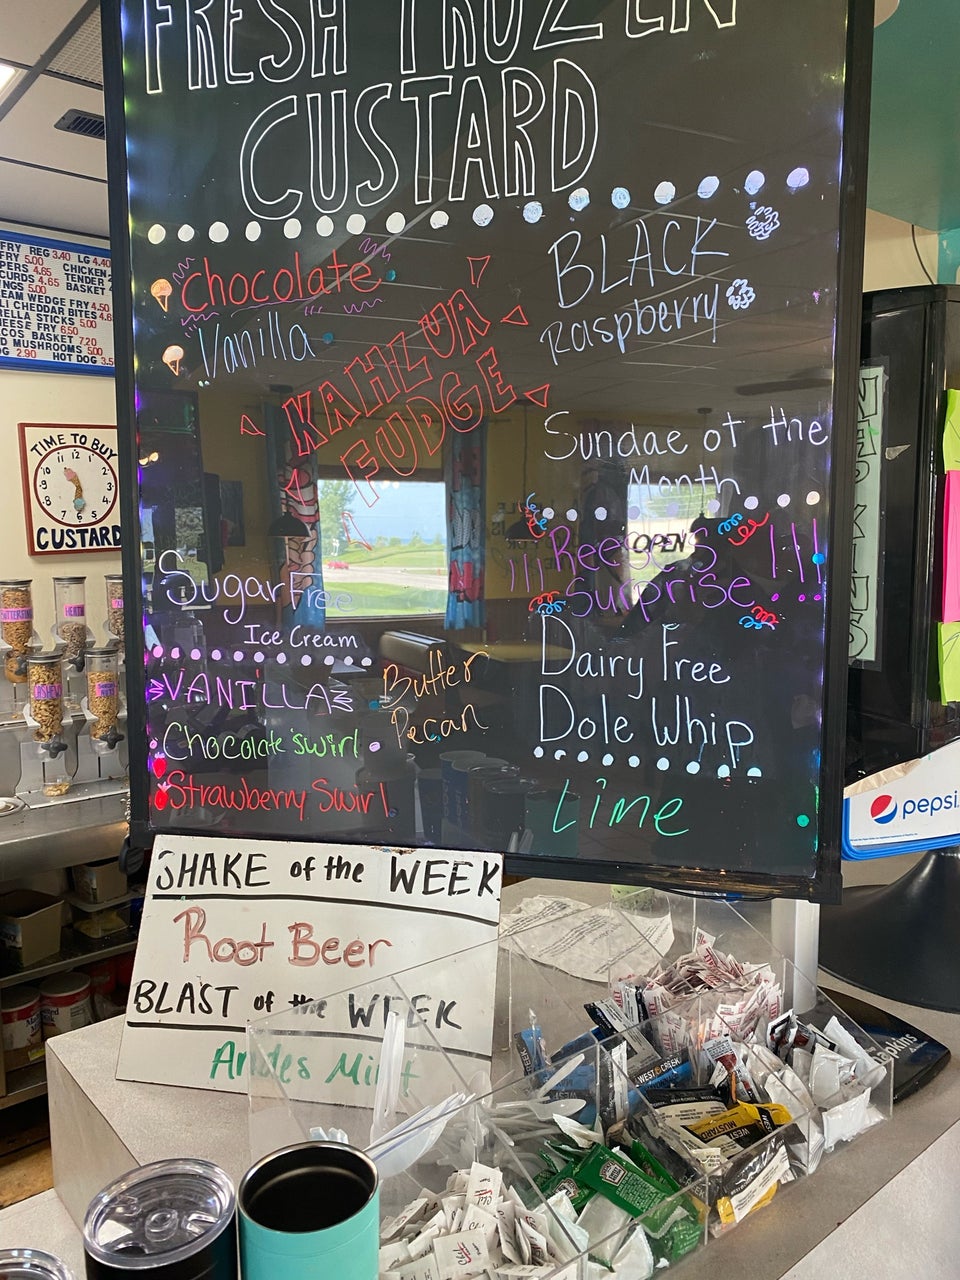 FRESH FROZEN
CUSTARD
Chocolate
Vanilla
KAHLUA
FUDGE
BLACK
Raspberry
Sundae of the
Month
!!! Reese's !!!
Surprise
OPEN
Sugar Free
Ice Cream
VANILLA
Chocolate swirl
Strawberry Swirl
Butter
Pecan
Dairy Free
Dole Whip
Lime
SHAKE of the WEEK
Root Beer
BLAST of the WEEK
Andes Mint
FRY REG 3.40 LG 4.40
FRY 5.00 CHICKEN
PERS 4.65 TENDER
CURDS 4.65 BASKET
NGS 5.00
EAM WEDGE FRY 4.50
LI CHEDDAR BITES 4.6
RELLA STICKS 5.00
HEESE FRY 6.50
COS BASKET 7.20
D MUSHROOMS 5.00
OG 2.90 HOT DOG 3.5
TIME TO BUY
12
1
2
3
4
5
6
7
8
9
10
11
CUSTARD
HEATH
CASHEWS
pepsi
napkins
WEST CREEK
MUSTARD
WEST